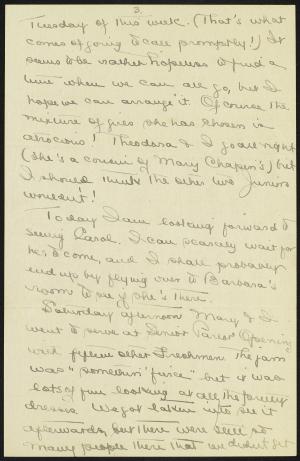 3.
Tuesday of this week. (That's what
comes of going to call promptly!) It
seems to be rather hopeless to find a
time when we can all go, but I
hope we can arrange it. Of course the
mixture of girls she has chosen is
atrocious! Theodora & I go all right
(she's a cousin of Mary Chapin's) but
I should think the other two Juniors
wouldn't!
Today I am looking forward to
seeing Carol. I can scarcely wait for
her to come, and I shall probably
end up by flying over to Barbara's
room to see if she's there.
Saturday afternoon Mary & I
went to serve at Senior Parlor Opening
with fifteen other Freshmen. The jam
was "somethin' fierce" but it was
lots of fun looking at all the pretty
dresses. We got taken into see it
afterwards, but there were still so
many people there that we didn't get